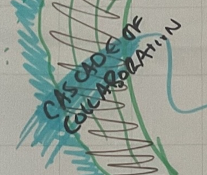 CASCADE OF
COLLABORATION